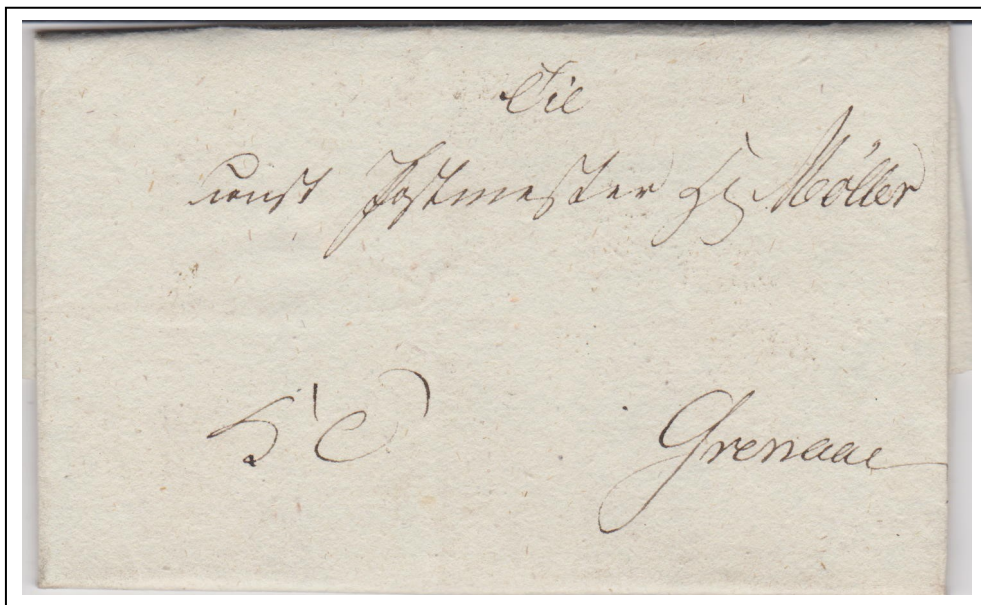 Til
const Postmester Hr Møller
Grenaae